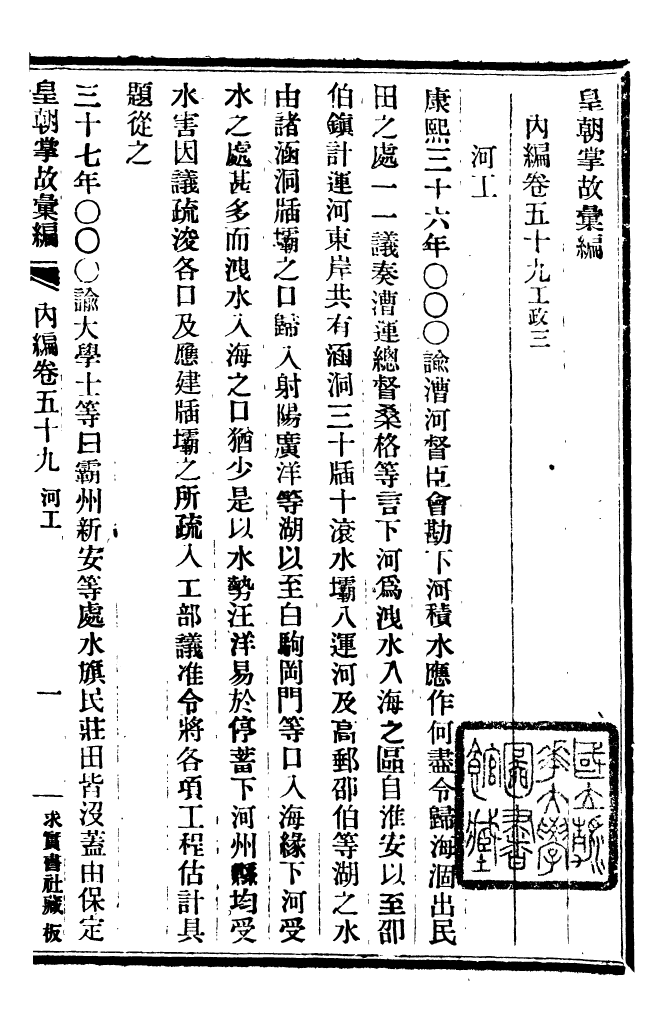 皇朝掌故彙編
內編卷五十九工政三
河工
康熙三十六年〇〇〇諭漕河督臣會勘下河積水應作何盡令歸海涸出民
田之處一一議奏漕運總督桑格等言下河爲洩水入海之區自淮安以至卲
伯鎮計運河東岸共有涵洞三十牐十滾水壩八運河及高郵邵伯等湖之水
由諸涵洞牐壩之口歸入射陽廣洋等湖以至白駒岡門等口入海緣下河受
水之處甚多而洩水入海之口猶少是以水勢汪洋易於停蓄下河州縣均受
水害因議疏浚各口及應建牐壩之所疏入工部議准令將各項工程估計具
題從之
三十七年〇〇〇諭大學士等曰霸州新安等處水旗民莊田皆沒蓋由保定
皇朝掌故彙編 內編卷五十九 河工 一 求實書社藏板
國立清華大學圖書館藏